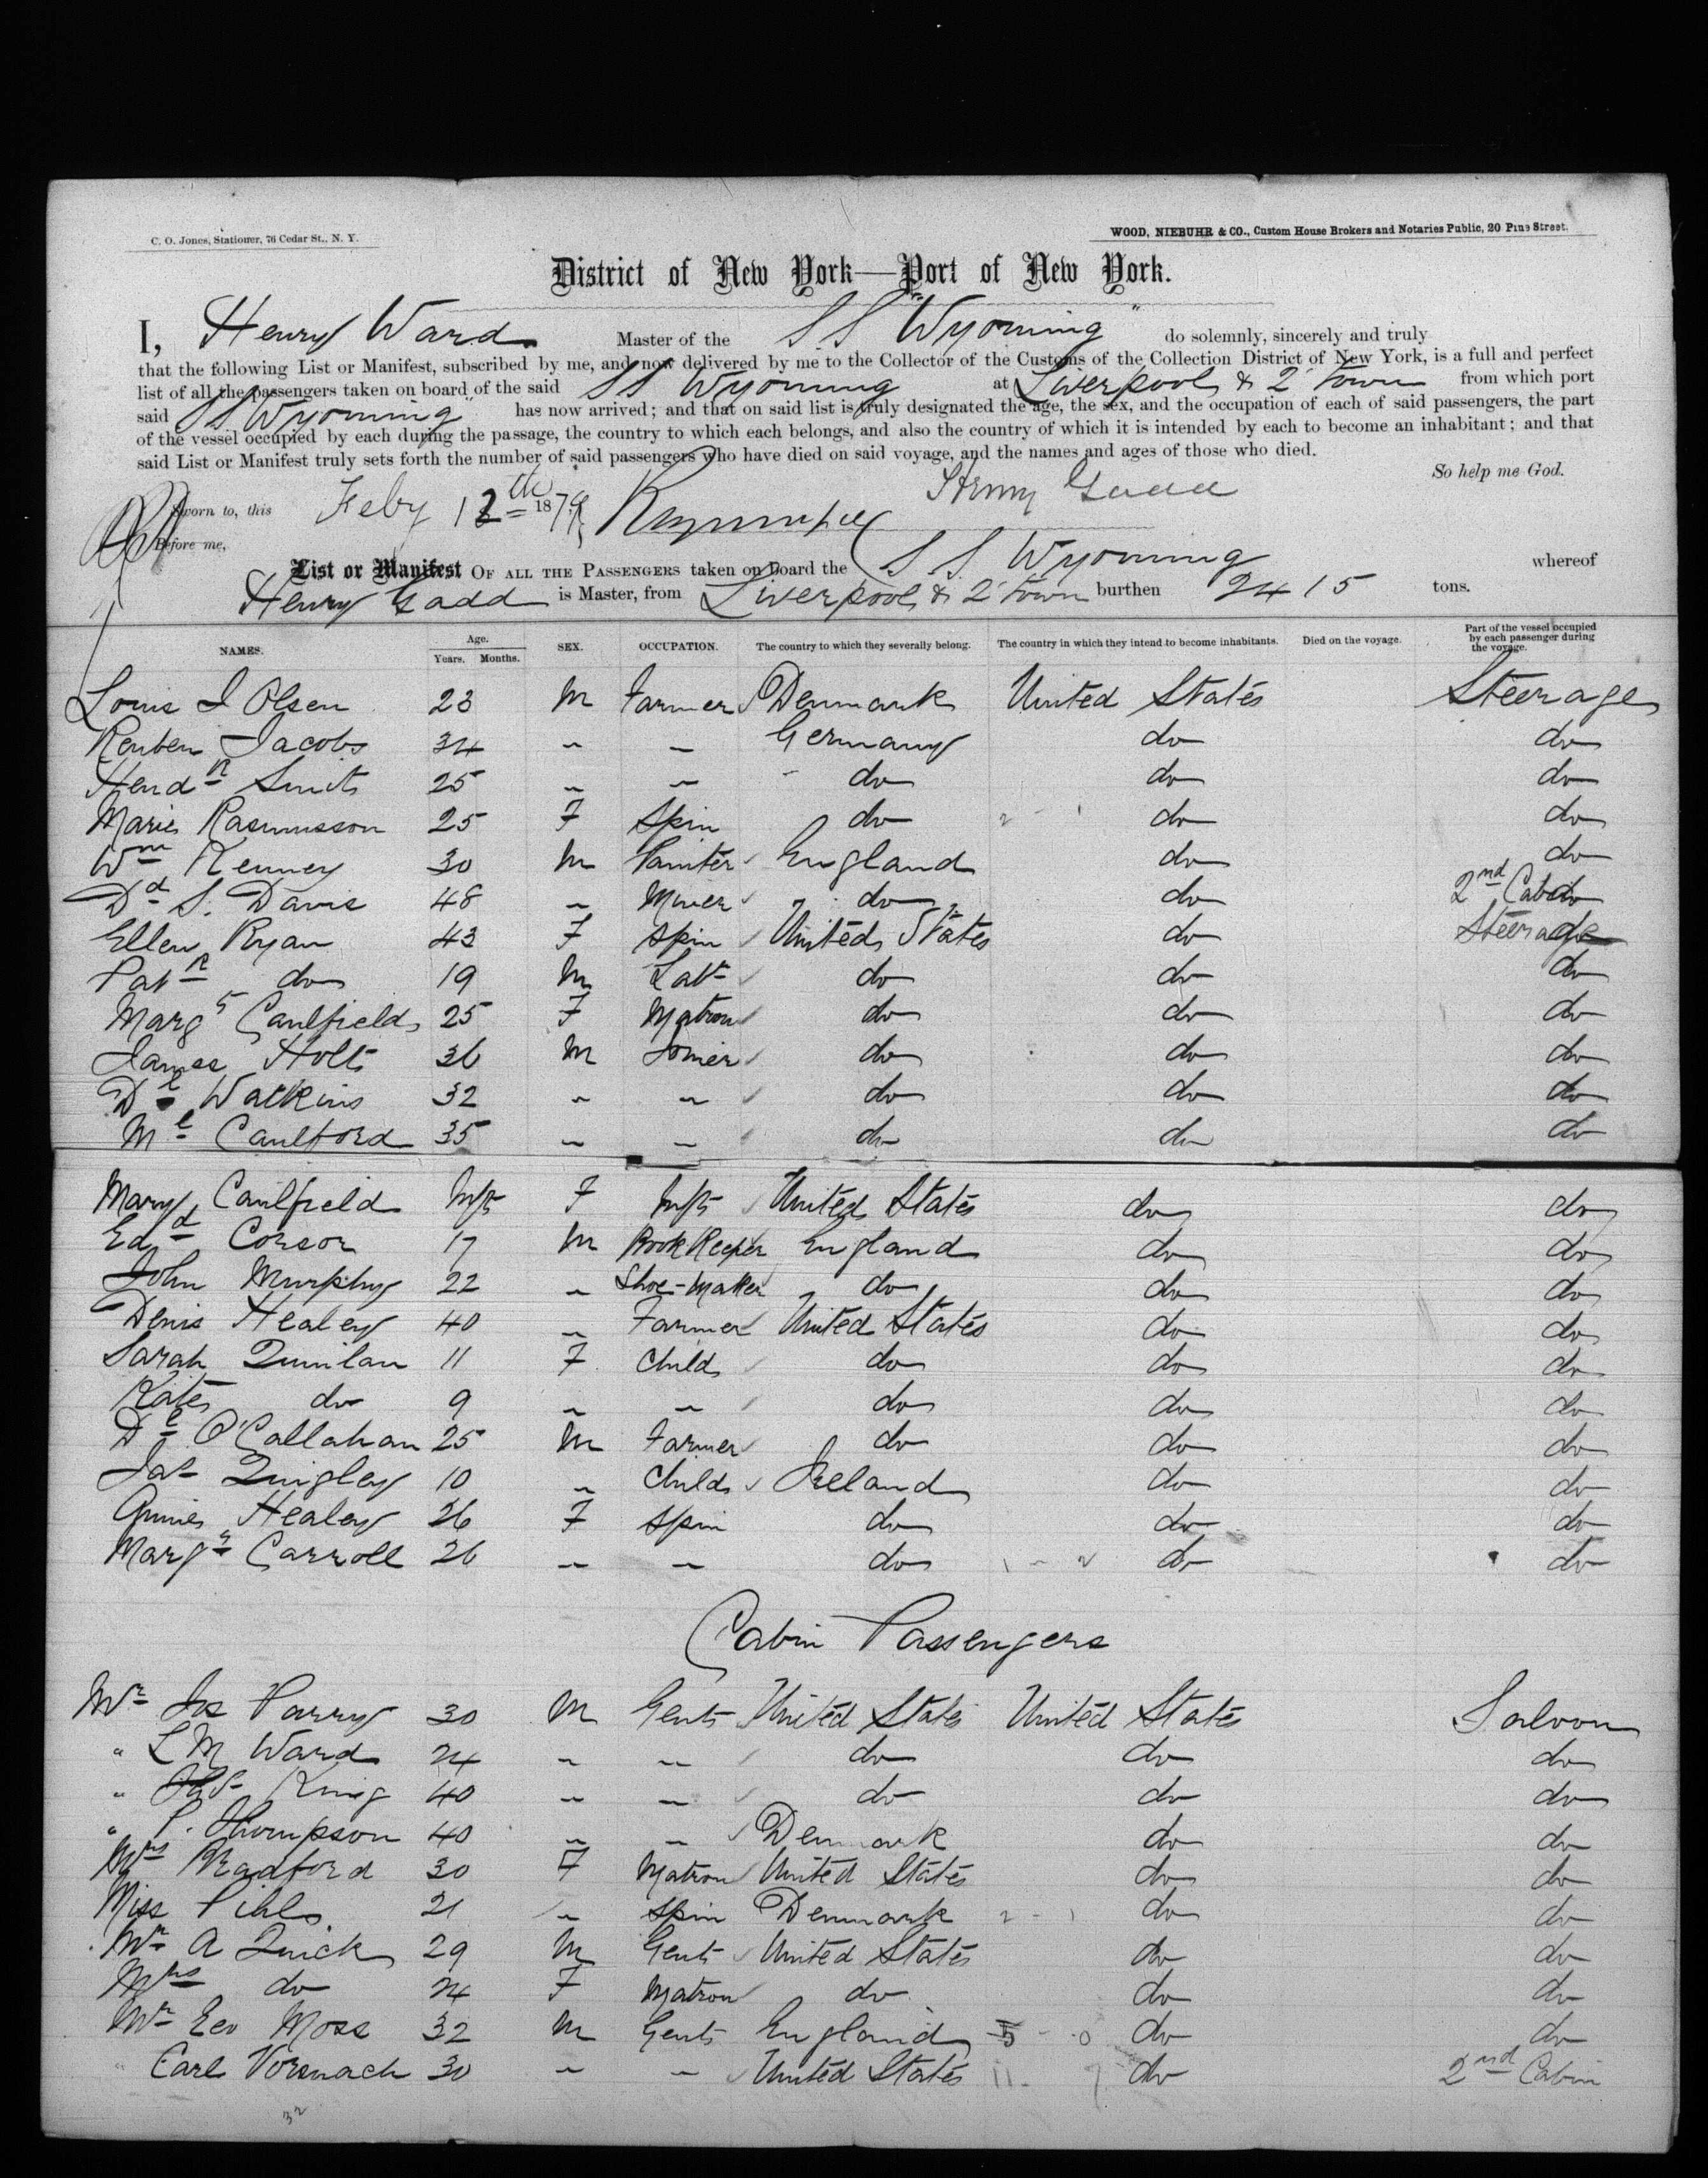 C. O. Jones, Stationer, 76 Cedar St., N. Y.
WOOD, NIEBUHR & CO., Custom House Brokers and Notaries Public, 20 Pine Street.
District of New York—Port of New York.
I, Henry Ward Master of the SS "Wyoming" do solemnly, sincerely and truly
that the following List or Manifest, subscribed by me, and now delivered by me to the Collector of the Customs of the Collection District of New York, is a full and perfect
list of all the passengers taken on board of the said SS Wyoming at Liverpool & 2' Town from which port
said SS Wyoming" has now arrived; and that on said list is truly designated the age, the sex, and the occupation of each of said passengers, the part
of the vessel occupied by each during the passage, the country to which each belongs, and also the country of which it is intended by each to become an inhabitant; and that
said List or Manifest truly sets forth the number of said passengers who have died on said voyage, and the names and ages of those who died.
So help me God.
Sworn to, this Feby 12th 1879 Henry Gadd
Before me,
List or Manifest OF ALL THE PASSENGERS taken on board the SS Wyoming whereof
Henry Gadd is Master, from Liverpool & 2' Town burthen 2415 tons.
NAMES. Age. Years. Months. SEX. OCCUPATION. The country to which they severally belong. The country in which they intend to become inhabitants. Died on the voyage. Part of the vessel occupied by each passenger during the voyage.
Louis J Olsen 23 M Farmer Denmark United States Steerage
Reuben Jacobs 34 " " Germany do do
Hendk Smits 25 " " do do do
Marie Rasmusson 25 F Spin do do do
Wm Kenney 30 M Painter England do do
Dd S. Davis 48 " Miner do do 2nd Cabin
Ellen Ryan 43 F Spin United States do Steerage
Patk do 19 M Labr do do do
Margt Caulfield 25 F Matron do do do
James Holt 36 M Joiner do do do
Dl Watkins 32 " " do do do
Ml Caulford 35 " " do do do
Mary Caulfield Inft F Inft United States do do
Edd Corsor 17 M Book Keeper England do do
John Murphy 22 " Shoe-Maker do do do
Denis Healey 40 " Farmer United States do do
Sarah Quinlan 11 F Child do do do
Kate do 9 " " do do do
Dl O'Callahan 25 M Farmer do do do
Jas Quigley 10 " Child Ireland do do
Annie Healey 26 F Spin do do do
Margt Carroll 26 " " do do do
Cabin Passengers
Mr Jos Parry 30 M Gent United States United States Saloon
" L M Ward 24 " " do do do
" Jas King 40 " " do do do
" P. Thompson 40 " " Denmark do do
Mrs Bradford 30 F Matron United States do do
Miss Pihl 21 " Spin Denmark do do
Mr A Quick 29 M Gent United States do do
Mrs do 24 F Matron do do do
Mr Leo Moss 32 M Gent England do do
" Carl Vorsnach 30 " " United States do 2nd Cabin
32